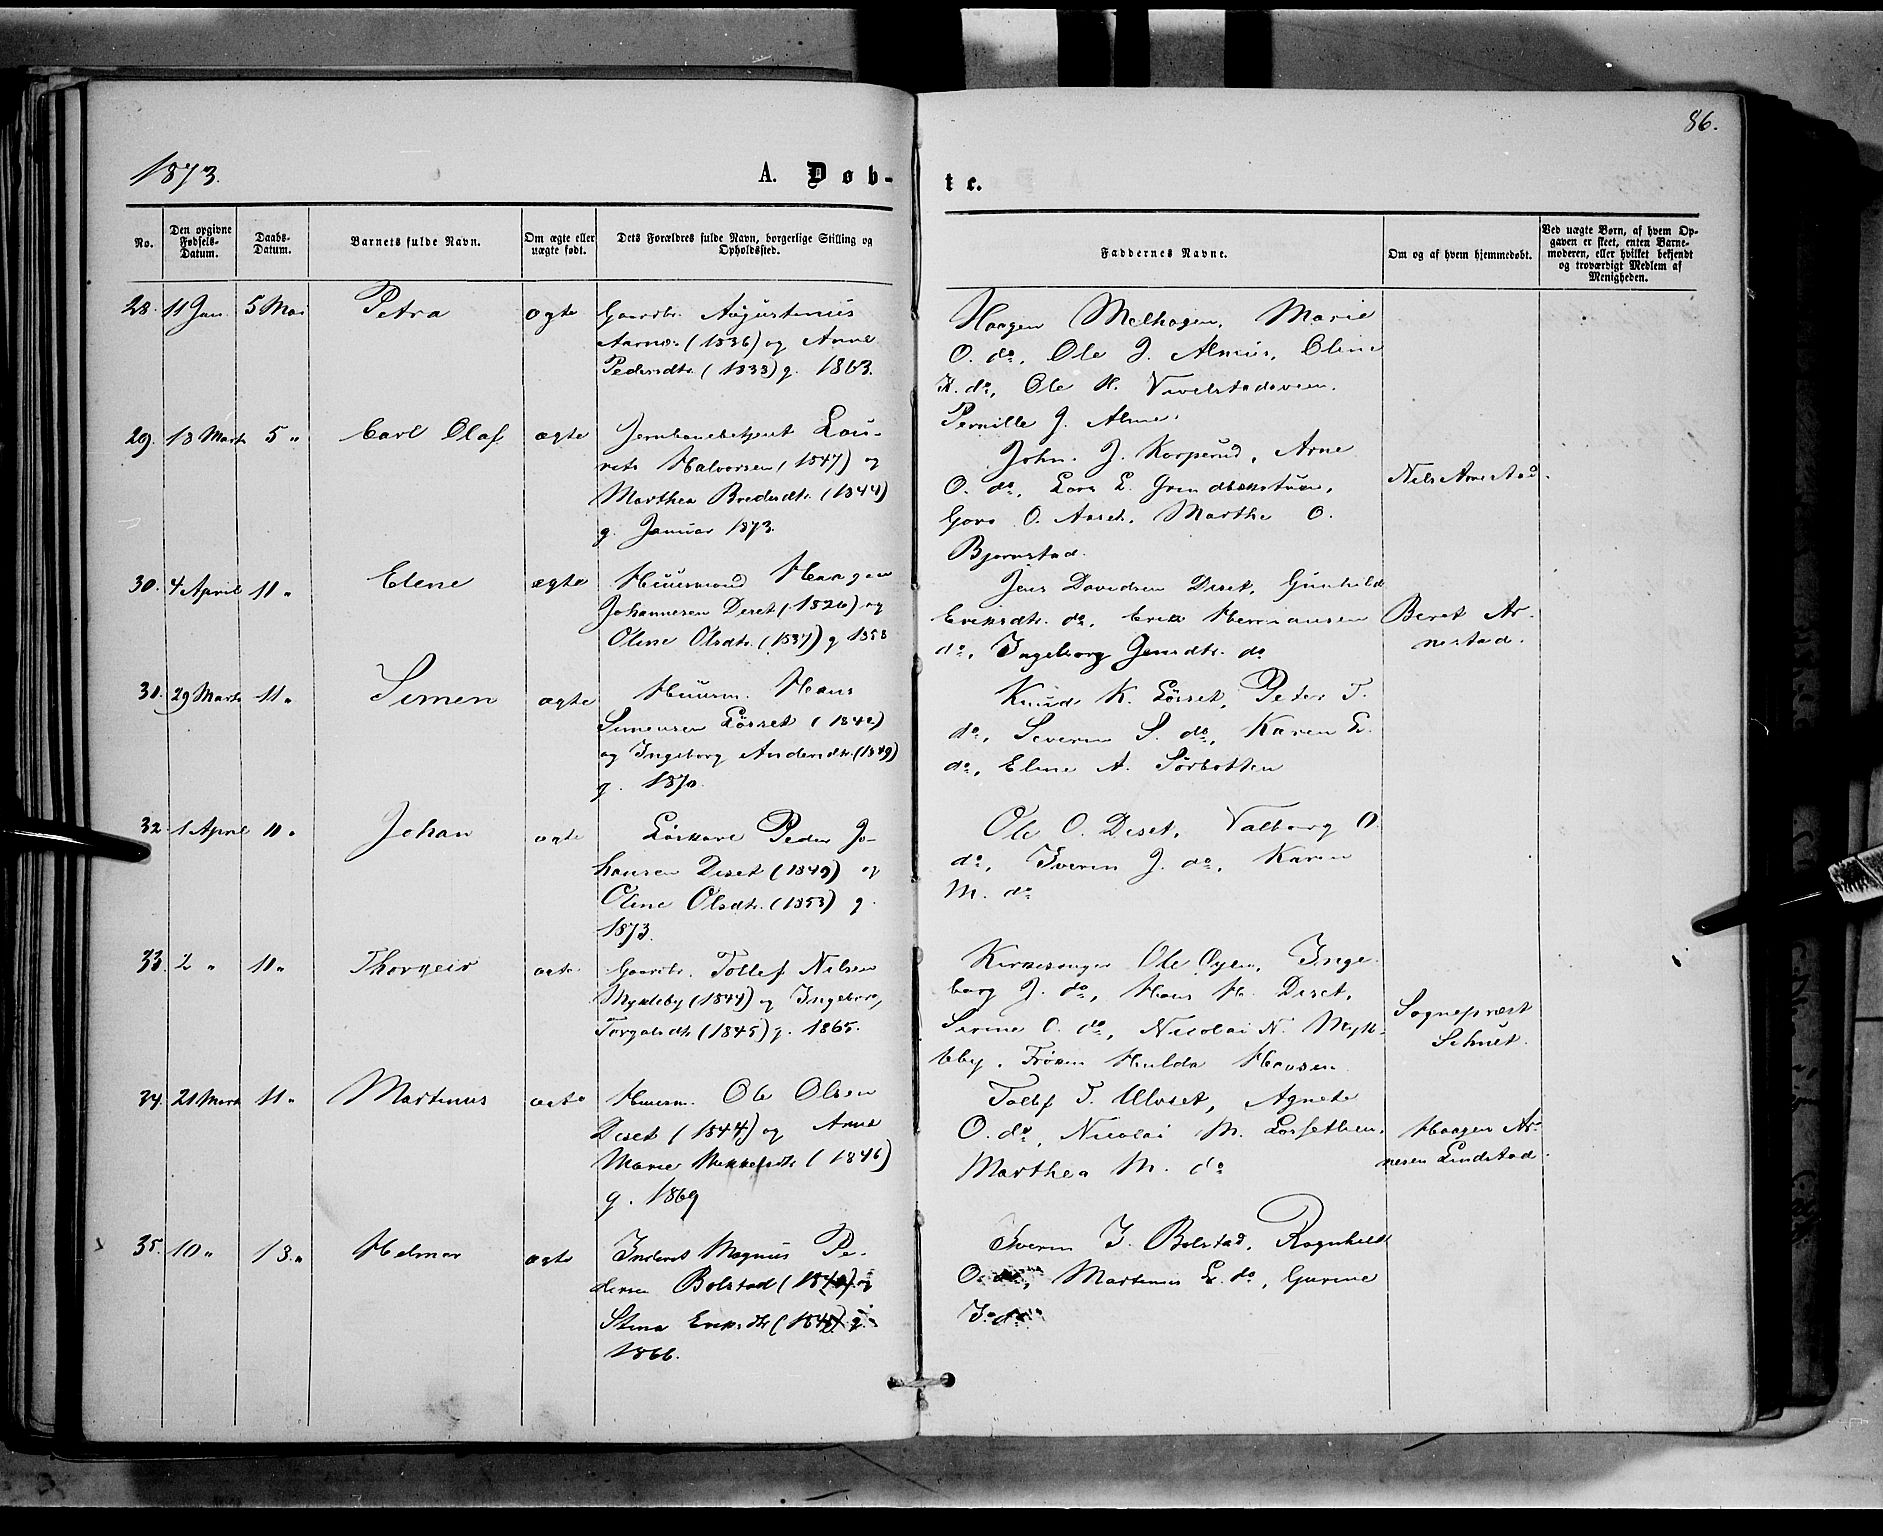 86.
1873.
A. Døb-
te.
No.
Den opgivne Fødsels-Datum.
Daabs-Datum.
Barnets fulde Navn.
Om ægte eller uægte født.
Dets Forældres fulde Navn, borgerlige Stilling og Opholdssted.
Faddernes Navne.
Om og af hvem hjemmedøbt.
Ved uægte Børn, af hvem Opgaven er skeet, enten Barnemoderen, eller hvilket bekjendt og troværdigt Medlem af Menigheden.
28. 11 Jan. 5 Mai Petra ægte Gaardbr. Augustinus
Aarnes (1836) og Anne
Pedersdtr. (1833) g. 1863.
Haagen Melhagen, Marie
O. do, Ole J. Almes, Oline
K. do, Ole H. Vivelstadsveen.
Pernille J. Alme.
29. 18 Marts 5 " Carl Olaf ægte Jernbanebetjent Lau-
rits Halvorsen (1847) og
Marthea Bredesdtr. (1844)
g. Januar 1873.
John J. Korperud, Arne
O. do, Lars L. Grindbakstuen,
Goro O. Aaset, Marthe O.
Bjørnstad.
Nils Arnestad.
30. 4 April 11 " Elene ægte Huusmand Haagen
Johannesen Deset (1826) og
Oline Olsdtr. (1837) g. 1858
Jens Davidsen Deset, Gunhild
Eriksdtr. do, Erik Hermansen
do, Ingeborg Jensdtr. do
Beret Ar-
nestad.
31. 29 Marts 11 " Simen ægte Huusm. Hans
Simensen Løsset (1842)
og Ingeborg Andersdtr. (1849)
g. 1870.
Knud K. Løsset, Peder T.
do, Severin S. do, Karen L.
do, Eline A. Sørbotten
32. 1 April 11 " Johan ægte Løskarl Peder Jo-
hansen Deset (1849) og
Oline Olsdtr. (1853) g.
1873.
Ole O. Deset, Valborg O.
do, Iverin J. do, Karen
M. do
33. 2 " 11 " Thorgeir ægte Gaardbr. Tollef Nilsen
Mykleby (1844) og Ingeborg
Torgalsdtr. (1845) g. 1865.
Kirkesanger Ole Oyen, Inge-
borg J. do, Hans H. Deset,
Sirine O. do, Nicolai N. Myk-
leby, Frøken Hulda Hansen.
Sognepræst
Schiøt.
34. 21 Marts 11 " Martinus ægte Huusm. Ole Olsen
Deset (1844) og Anne
Marie Mikkelsdtr. (1846)
g. 1869
Tollef T. Ulvset, Agnete
O. do, Nicolai M. Løssethen,
Marthea M. do
Haagen Ar-
nesen Lindstad.
35. 10 " 13 " Helmer ægte Inderst Magnus Pe-
dersen Bolstad (1840) og
Stina Eriksdtr. g.
1866.
Iverin I. Bolstad, Ragnhild
O. do, Martinus L. do, Gurine
I. do